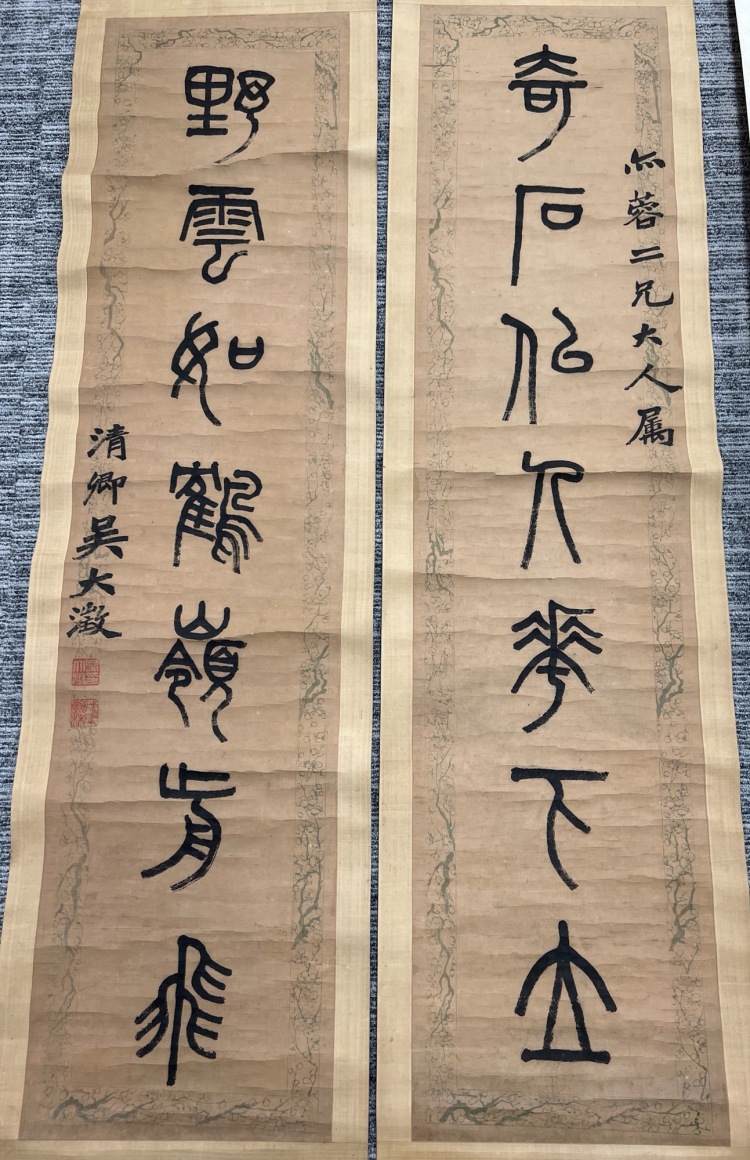 蓉二兄大人属
奇石似人華下立
野雲如鶴嶺前飛
清卿吴大澂